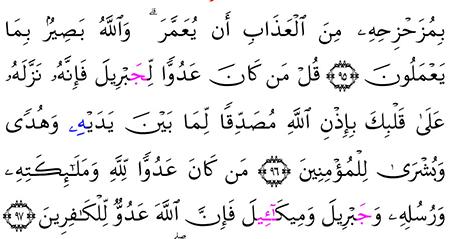 بِمُزَحْزِحِهِۦ مِنَ ٱلْعَذَابِ أَن يُعَمَّرَ ۗ وَٱللَّهُ بَصِيرُۢ بِمَا
يَعْمَلُونَ ۝٩٥ قُلْ مَن كَانَ عَدُوًّا لِّجَبْرِيلَ فَإِنَّهُۥ نَزَّلَهُۥ
عَلَىٰ قَلْبِكَ بِإِذْنِ ٱللَّهِ مُصَدِّقًا لِّمَا بَيْنَ يَدَيْهِۦ وَهُدًى
وَبُشْرَىٰ لِلْمُؤْمِنِينَ ۝٩٦ مَن كَانَ عَدُوًّا لِّلَّهِ وَمَلَـٰٓئِكَتِهِۦ
وَرُسُلِهِۦ وَجَبْرِيلَ وَمِيكَـٰٓئِيلَ فَإِنَّ ٱللَّهَ عَدُوٌّ لِّلْكَـٰفِرِينَ ۝٩٧